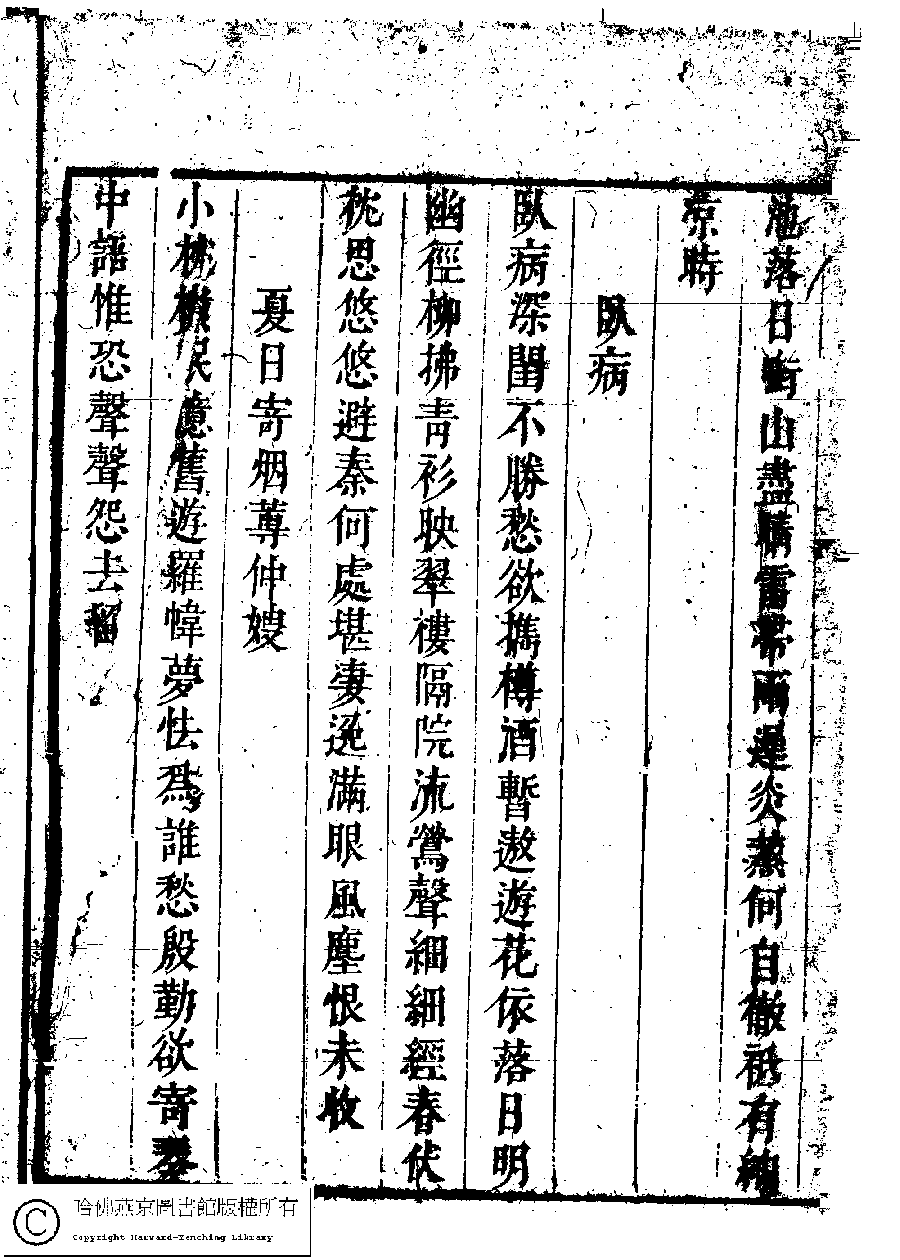 池落日銜山盡晴雷帶雨遲炎蒸何自徹祗有納
涼時
臥病
臥病深閨不勝愁欲攜樽酒暫遨遊花依落日明
幽徑柳拂青衫映翠樓隔院流鶯聲細細經春伏
枕思悠悠避秦何處堪棲遲滿眼風塵恨未收
夏日寄烟蓴仲嫂
小牀眠憶舊遊羅幃夢怯爲誰愁殷勤欲寄琴
中語惟恐聲聲怨去留
哈佛燕京圖書館版權所有
Copyright Harvard-Yenching Library